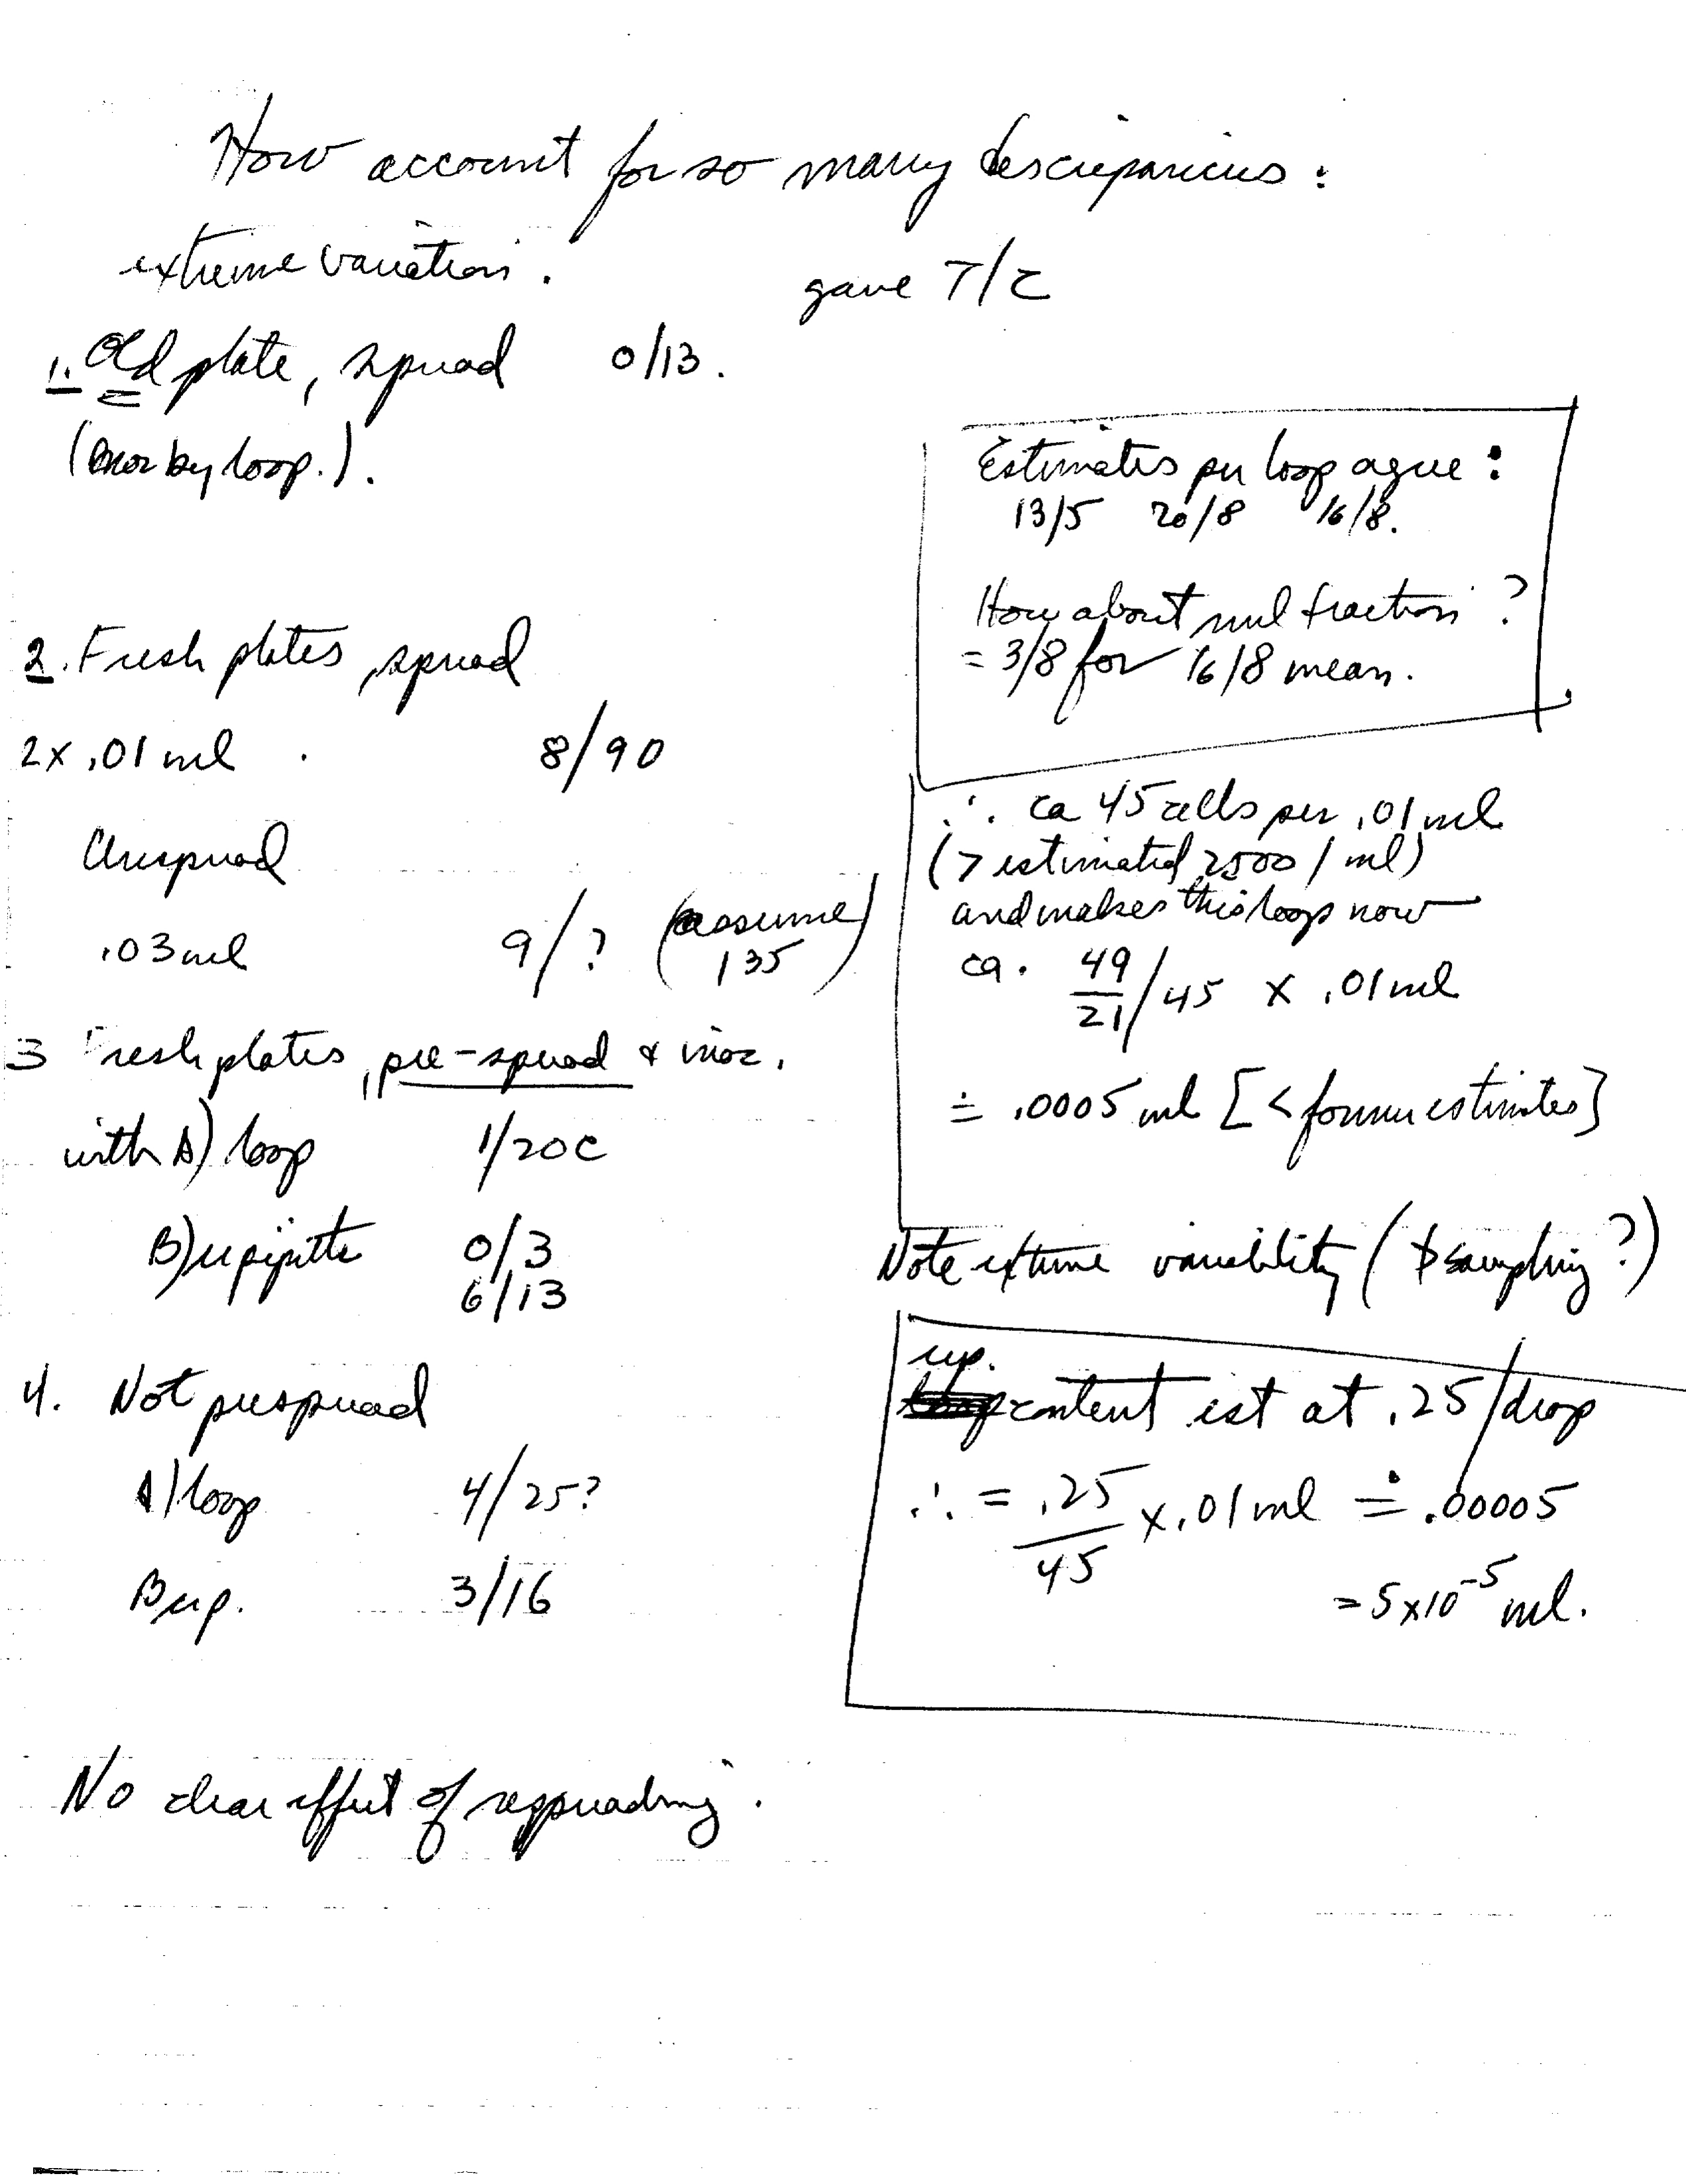 How account for so many descrepancies :
extreme variation .
gave T/C
1. Old plate, spread 0/13 .
(inoc by loop.) .
2. Fresh plates, spread
2 x .01 ml . 8/90
Unspread
.03 ml 9/? (assume 135)
3 Fresh plates, pre-spread & inoc.
with A) loop 1/20C
B) μpipette 0/3
6/13
4. Not prespread
A) loop 4/25?
B μp. 3/16
No clear effect of respreading .
Estimates per loop agree :
13/5 20/8 16/8.
How about nul fraction ?
= 3/8 for 16/8 mean.
∴ ca 45 cells per .01 ml
(> estimated 2500 / ml)
and makes this loop now
ca. 49/21 / 45 x .01 ml
≐ .0005 ml [< former estimates]
Note extreme variability ( sampling ?)
μp.
content est at .25/drop
∴ = .25/45 x .01 ml ≐ .00005
= 5x10⁻⁵ ml.